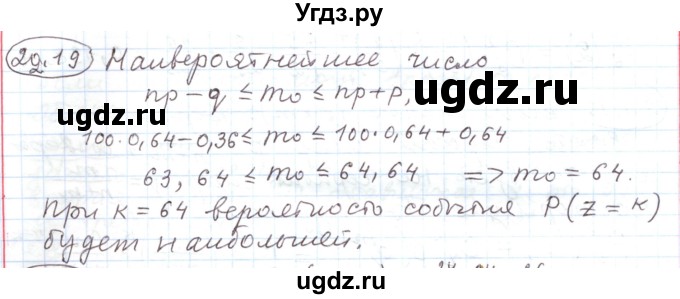 Угдз.ру
29.19 Наивероятнейшее число
ugdz.ru
np - q ≤ m₀ ≤ np + p,
ugdz.ru
100·0,64 - 0,36 ≤ m₀ ≤ 100·0,64 + 0,64
63,64 ≤ m₀ ≤ 64,64 => m₀ = 64.
При к = 64 вероятность события P(Z = к)
будет наибольшей.
ugdz.ru
ugdz.ru